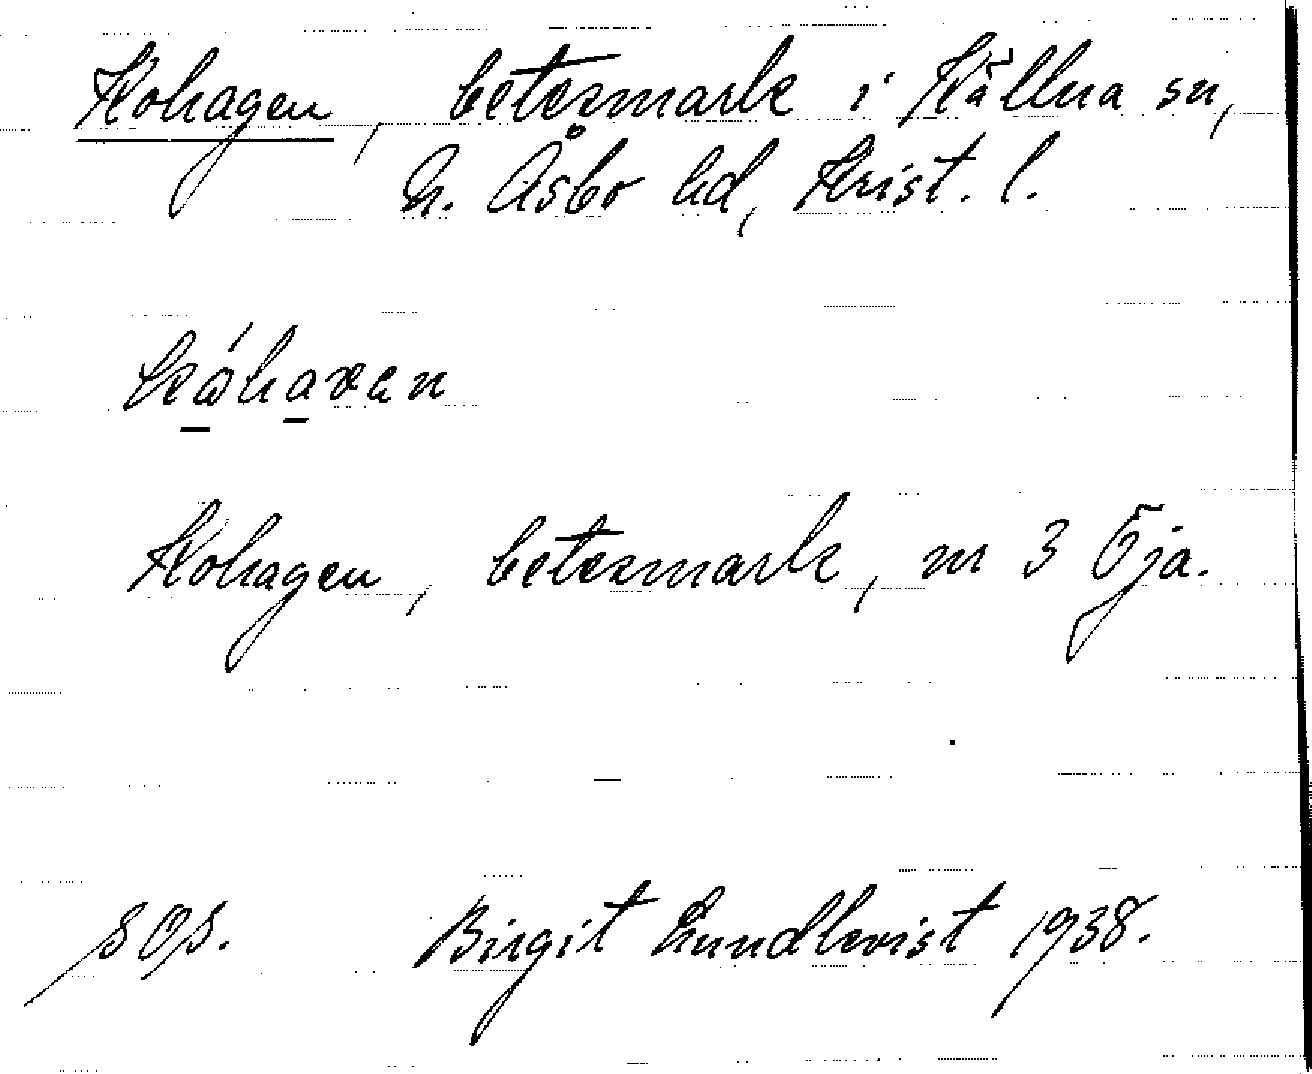 Kohagen, betesmark i Källna sn,
N. Åsbo hd, Krist. l.
Kohagen, betesmark, m 3 Öja.
SOS. Birgit Lundkvist 1938.